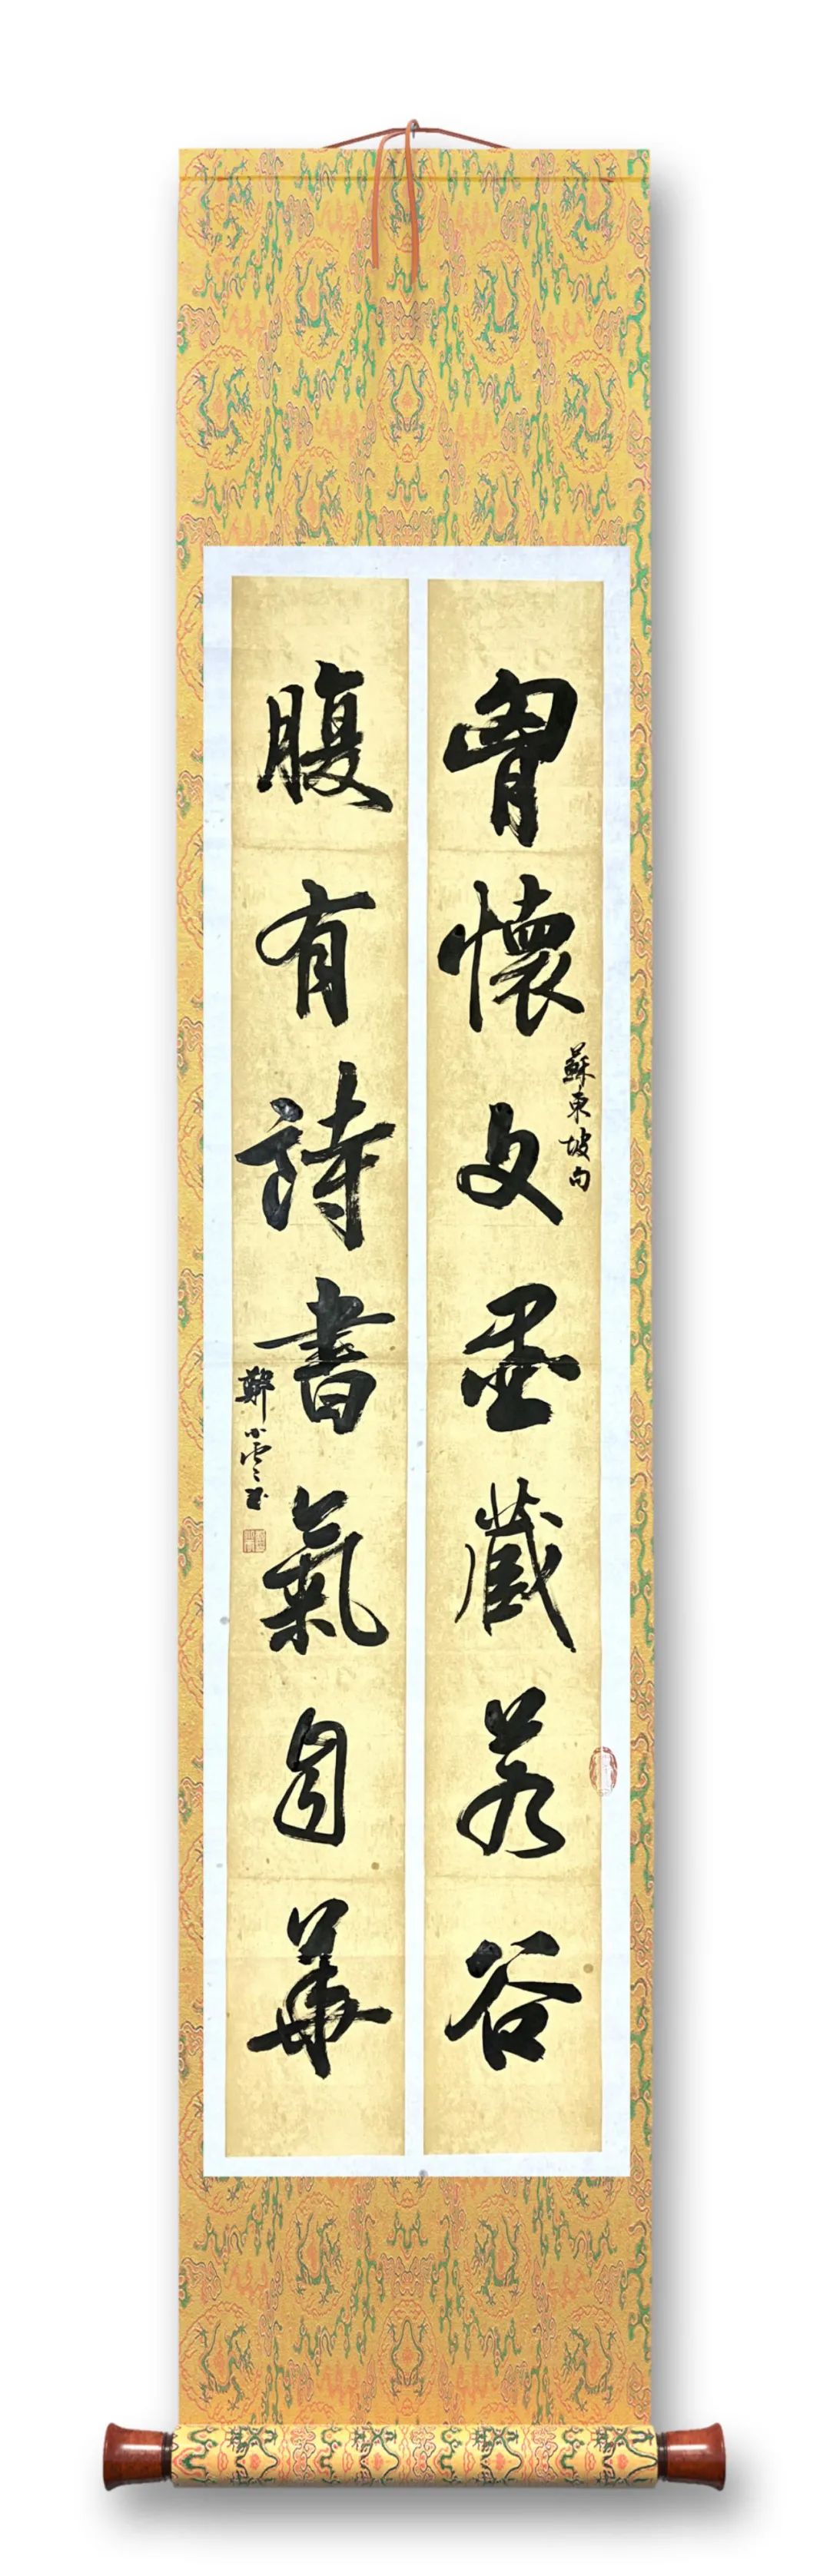 胷懷文墨藏若谷
蘇東坡句
腹有詩書氣自華
鄭小雲